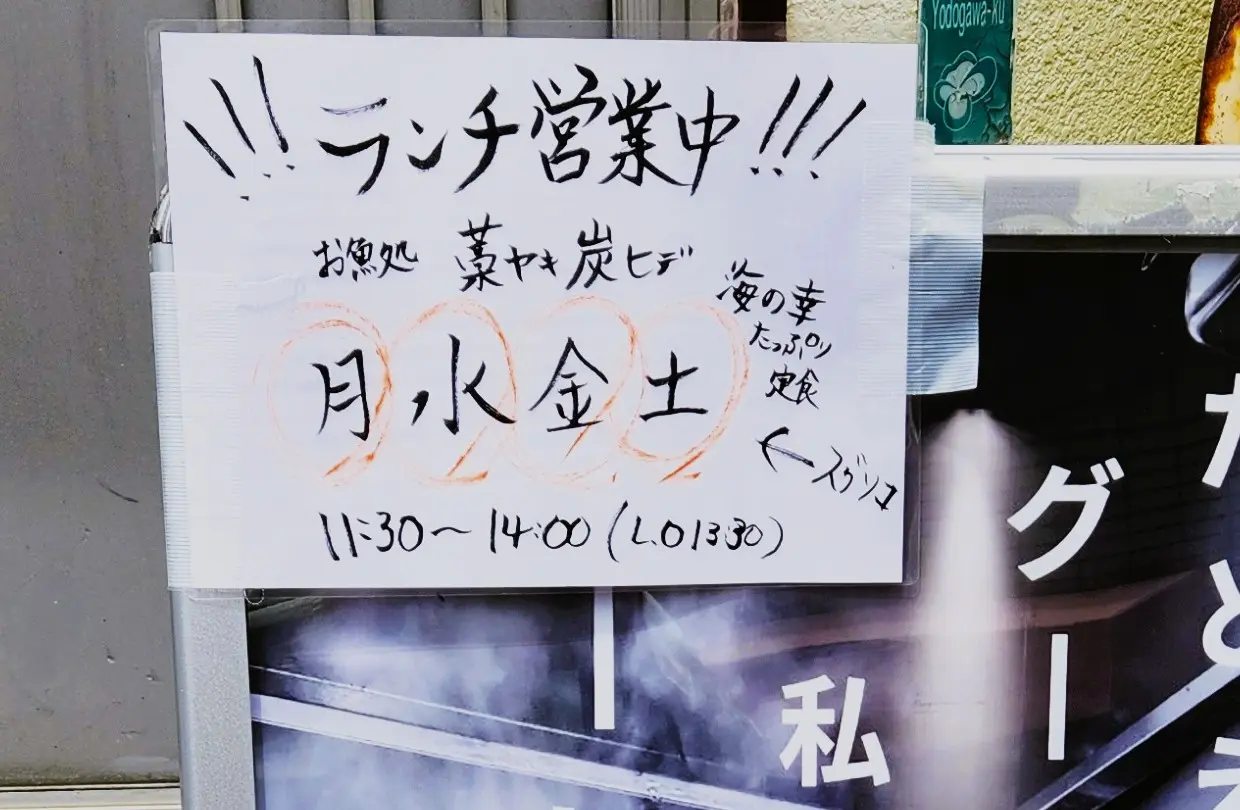 Yodogawa-ku
\\\ランチ営業中!!!
お魚処 藁ヤキ炭ヒデ
海の幸
たっぷり
定食
月水金土
←スグソコ
11:30～14:00(L.O13:30)
グー
私